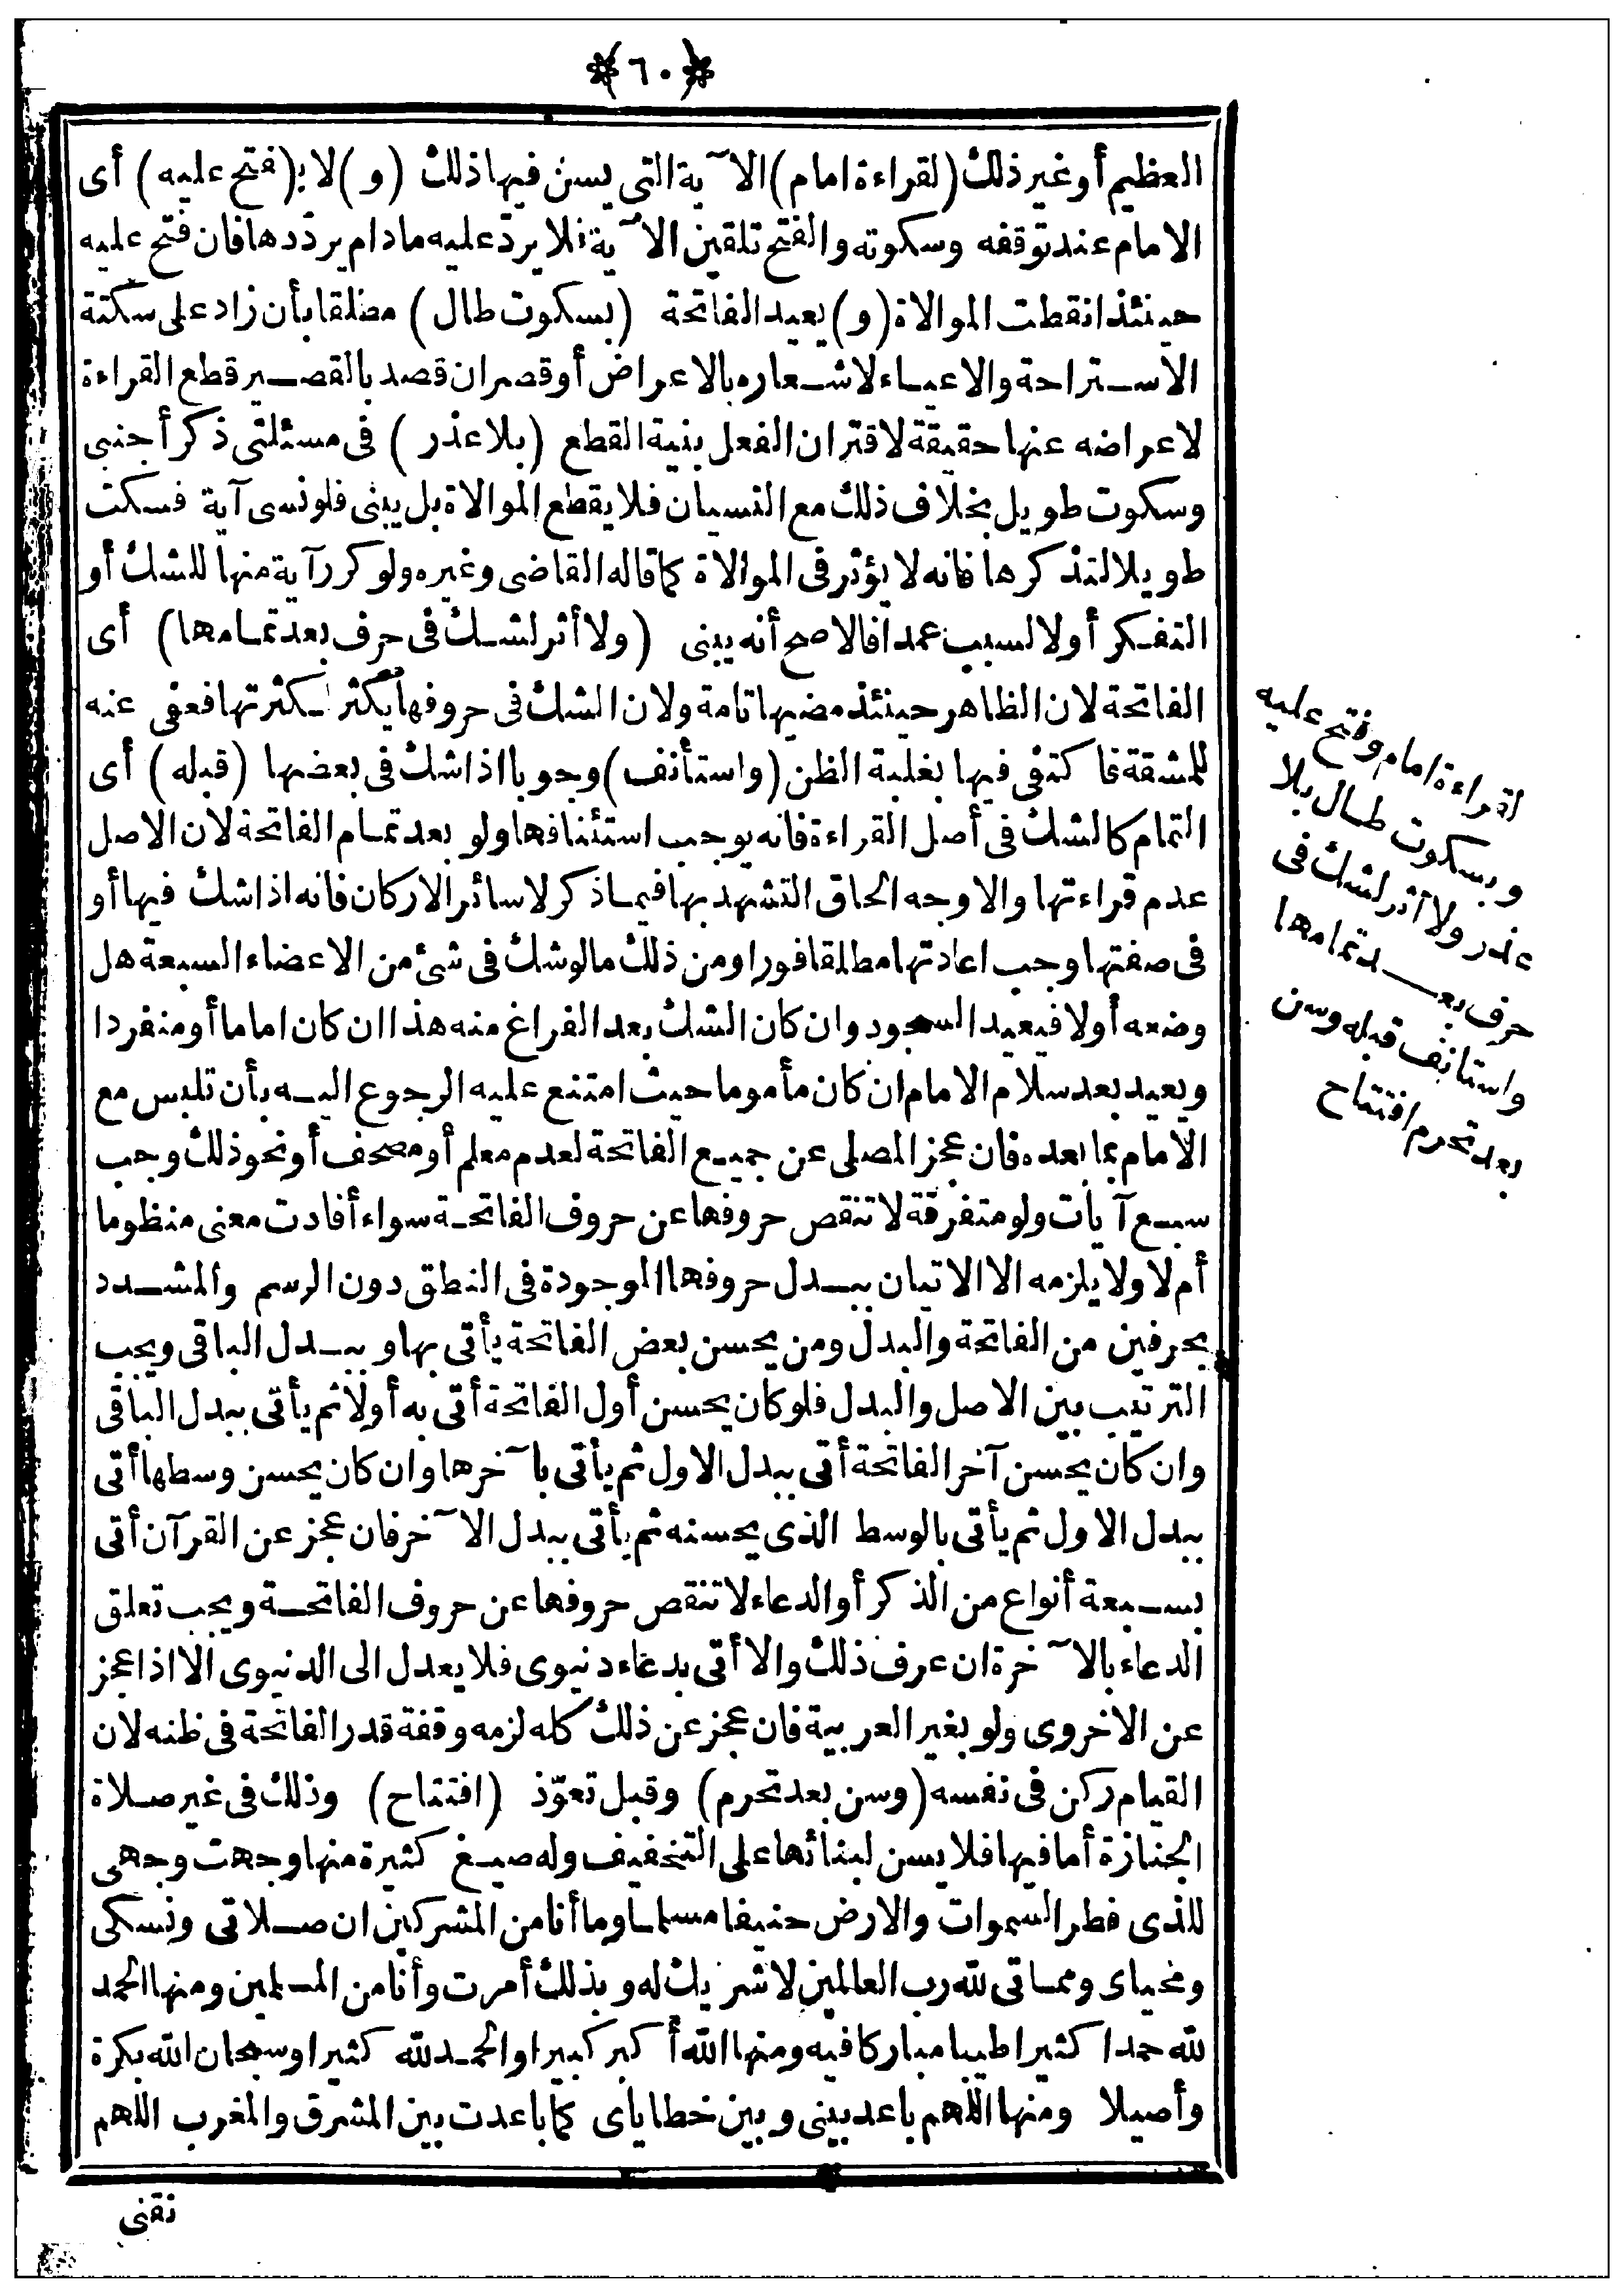 ﴿٦٠﴾
العظيم أو غير ذلك (لقراءة امام) الآية التى يسن فيها ذلك (و) لا ب(فتح عليه) أى
الامام عند توقفه وسكوته والفتح تلقين الآية فلا يردّ عليه مادام يردّدها فان فتح عليه
حينئذ انقطت الموالاة (و) يعيد الفاتحة (بسكوت طال) مطلقا بأن زاد على سكتة
الاستراحة والاعياء لاشعاره بالاعراض أو قصر ان قصد بالقصير قطع القراءة
لاعراضه عنها حقيقة لاقتران الفعل بنية القطع (بلا عذر) فى مسئلتى ذكر أجنبى
وسكوت طويل بخلاف ذلك مع النسيان فلا يقطع الموالاة بل يبنى فلو نسى آية فسكت
طويلا لتذكرها فانه لا يؤثر فى الموالاة كما قاله القاضى وغيره ولو كرر آية منها للشك أو
التفكر أو لا لسبب عمدا فالاصح أنه يبنى (ولا أثر لشك فى حرف بعد تمامها) أى
الفاتحة لان الظاهر حينئذ مضيها تامة ولان الشك فى حروفها يكثر لكثرتها فعفى عنه
للمشقة فاكتفى فيها بغلبة الظن (واستأنف) وجوبا اذا شك فى بعضها (قبله) أى
التمام كالشك فى أصل القراءة فانه يوجب استئنافها ولو بعد تمام الفاتحة لان الاصل
عدم قراءتها والاوجه الحاق التشهد بها فيما ذكر لا سائر الاركان فانه اذا شك فيها أو
فى صفتها وجب اعادتها مطلقا فورا ومن ذلك ما لو شك فى شئ من الاعضاء السبعة هل
وضعه أولا فيعيد السجود وان كان الشك بعد الفراغ منه هذا ان كان اماما أو منفردا
ويعيد بعد سلام الامام ان كان مأموما حيث امتنع عليه الرجوع اليه بأن تلبس مع
الامام بما بعده فان عجز المصلى عن جميع الفاتحة لعدم معلم أو مصحف أو نحو ذلك وجب
سبع آيات ولو متفرقة لا تنقص حروفها عن حروف الفاتحة سواء أفادت معنى منظوما
أم لا ولا يلزمه الا الاتيان ببدل حروفها الموجودة فى النطق دون الرسم والمشدد
بحرفين من الفاتحة والبدل ومن يحسن بعض الفاتحة يأتى بها وببدل الباقى ويجب
الترتيب بين الاصل والبدل فلو كان يحسن أول الفاتحة أتى به أولا ثم يأتى ببدل الباقى
وان كان يحسن آخر الفاتحة أتى ببدل الاول ثم يأتى بآخرها وان كان يحسن وسطها أتى
ببدل الاول ثم يأتى بالوسط الذى يحسنه ثم يأتى ببدل الآخر فان عجز عن القرآن أتى
بسبعة أنواع من الذكر أو الدعاء لا تنقص حروفها عن حروف الفاتحة ويجب تعلق
الدعاء بالآخرة ان عرف ذلك والا أتى بدعاء دنيوى فلا يعدل الى الدنيوى الا اذا عجز
عن الاخروى ولو بغير العربية فان عجز عن ذلك كله لزمه وقفة قدر الفاتحة فى ظنه لان
القيام ركن فى نفسه (وسن بعد تحرم) وقبل تعوّذ (افتتاح) وذلك فى غير صلاة
الجنازة أما فيها فلا يسن لبنائها على التخفيف وله صيغ كثيرة منها وجهت وجهى
للذى فطر السموات والارض حنيفا مسلما وما أنا من المشركين ان صلاتى ونسكى
ومحياى ومماتى لله رب العالمين لا شريك له وبذلك أمرت وأنا من المسلمين ومنها الحمد
لله حمدا كثيرا طيبا مباركا فيه ومنها الله أكبر كبيرا والحمد لله كثيرا وسبحان الله بكرة
وأصيلا ومنها اللهم باعد بينى وبين خطاياى كما باعدت بين المشرق والمغرب اللهم
نقنى
لقراءة امام وفتح عليه
وبسكوت طال بلا
عذر ولا أثر لشك فى
حرف بعد تمامها
واستأنف قبله وسن
بعد تحرم افتتاح